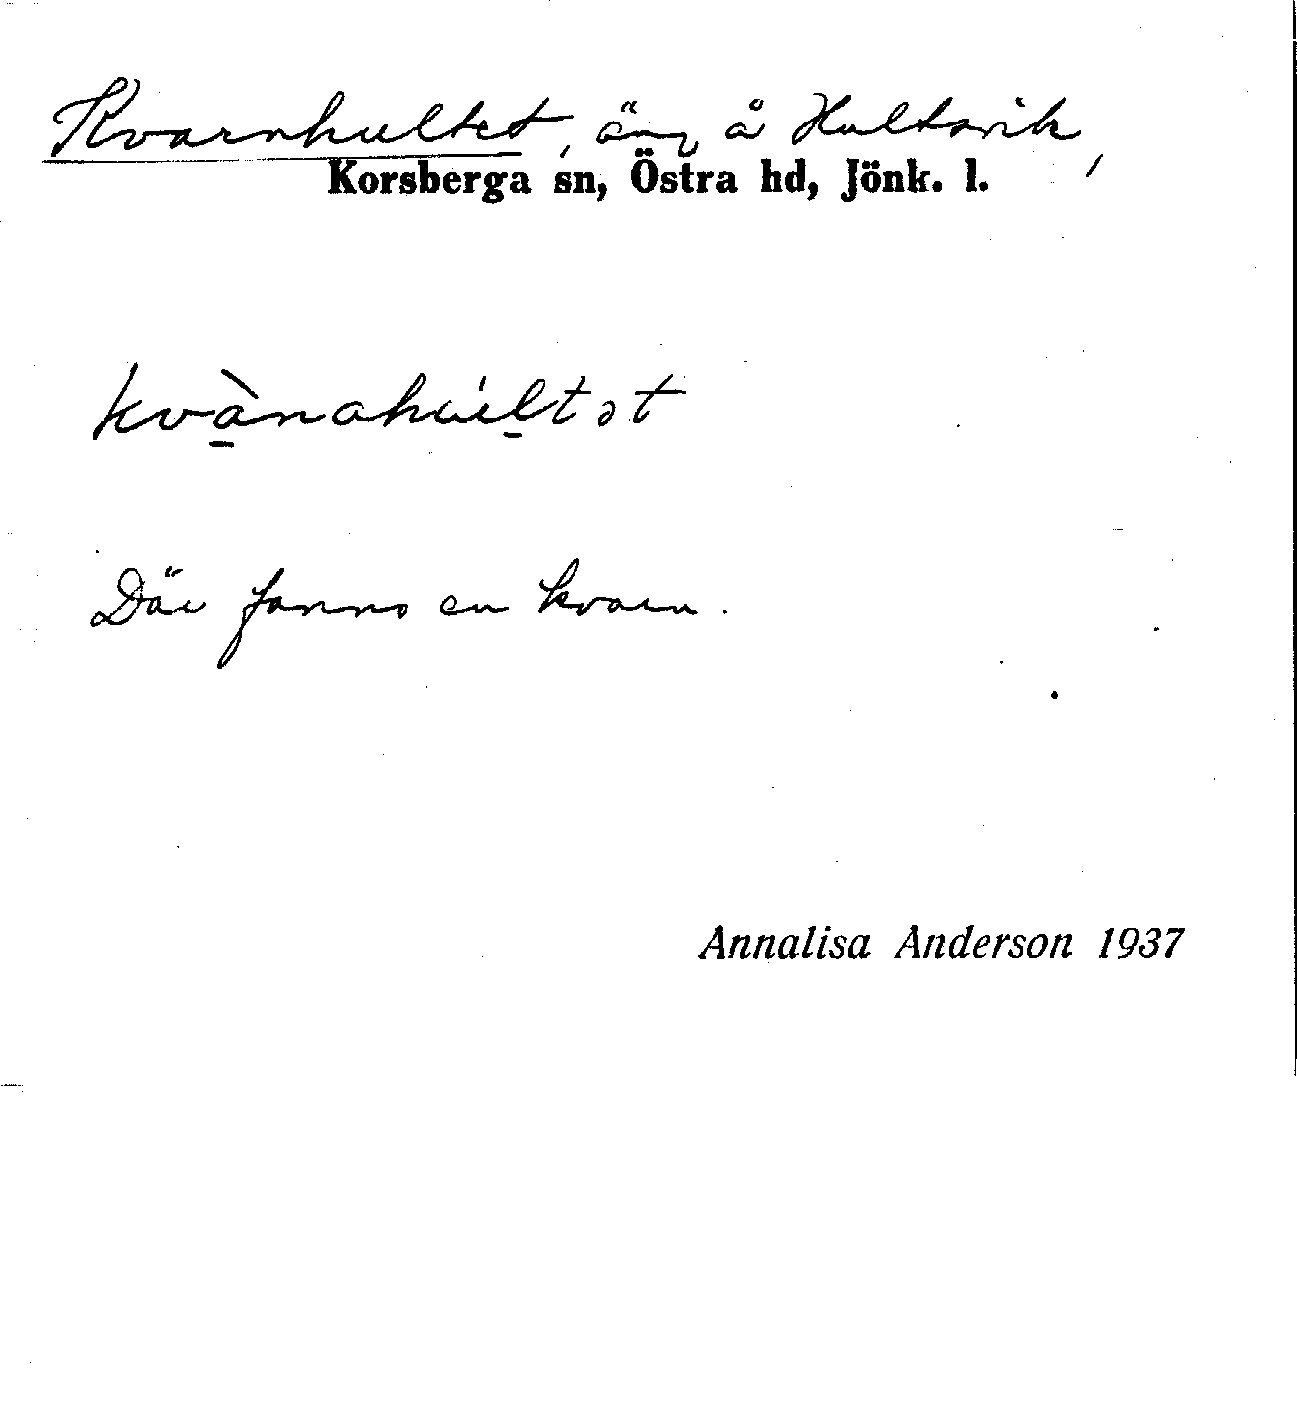 Kvarnhultet, äng å Hultsvik,
Korsberga sn, Östra hd, Jönk. l.
kvà̠nahúl̠tət
Där fanns en kvarn.
Annalisa Anderson 1937